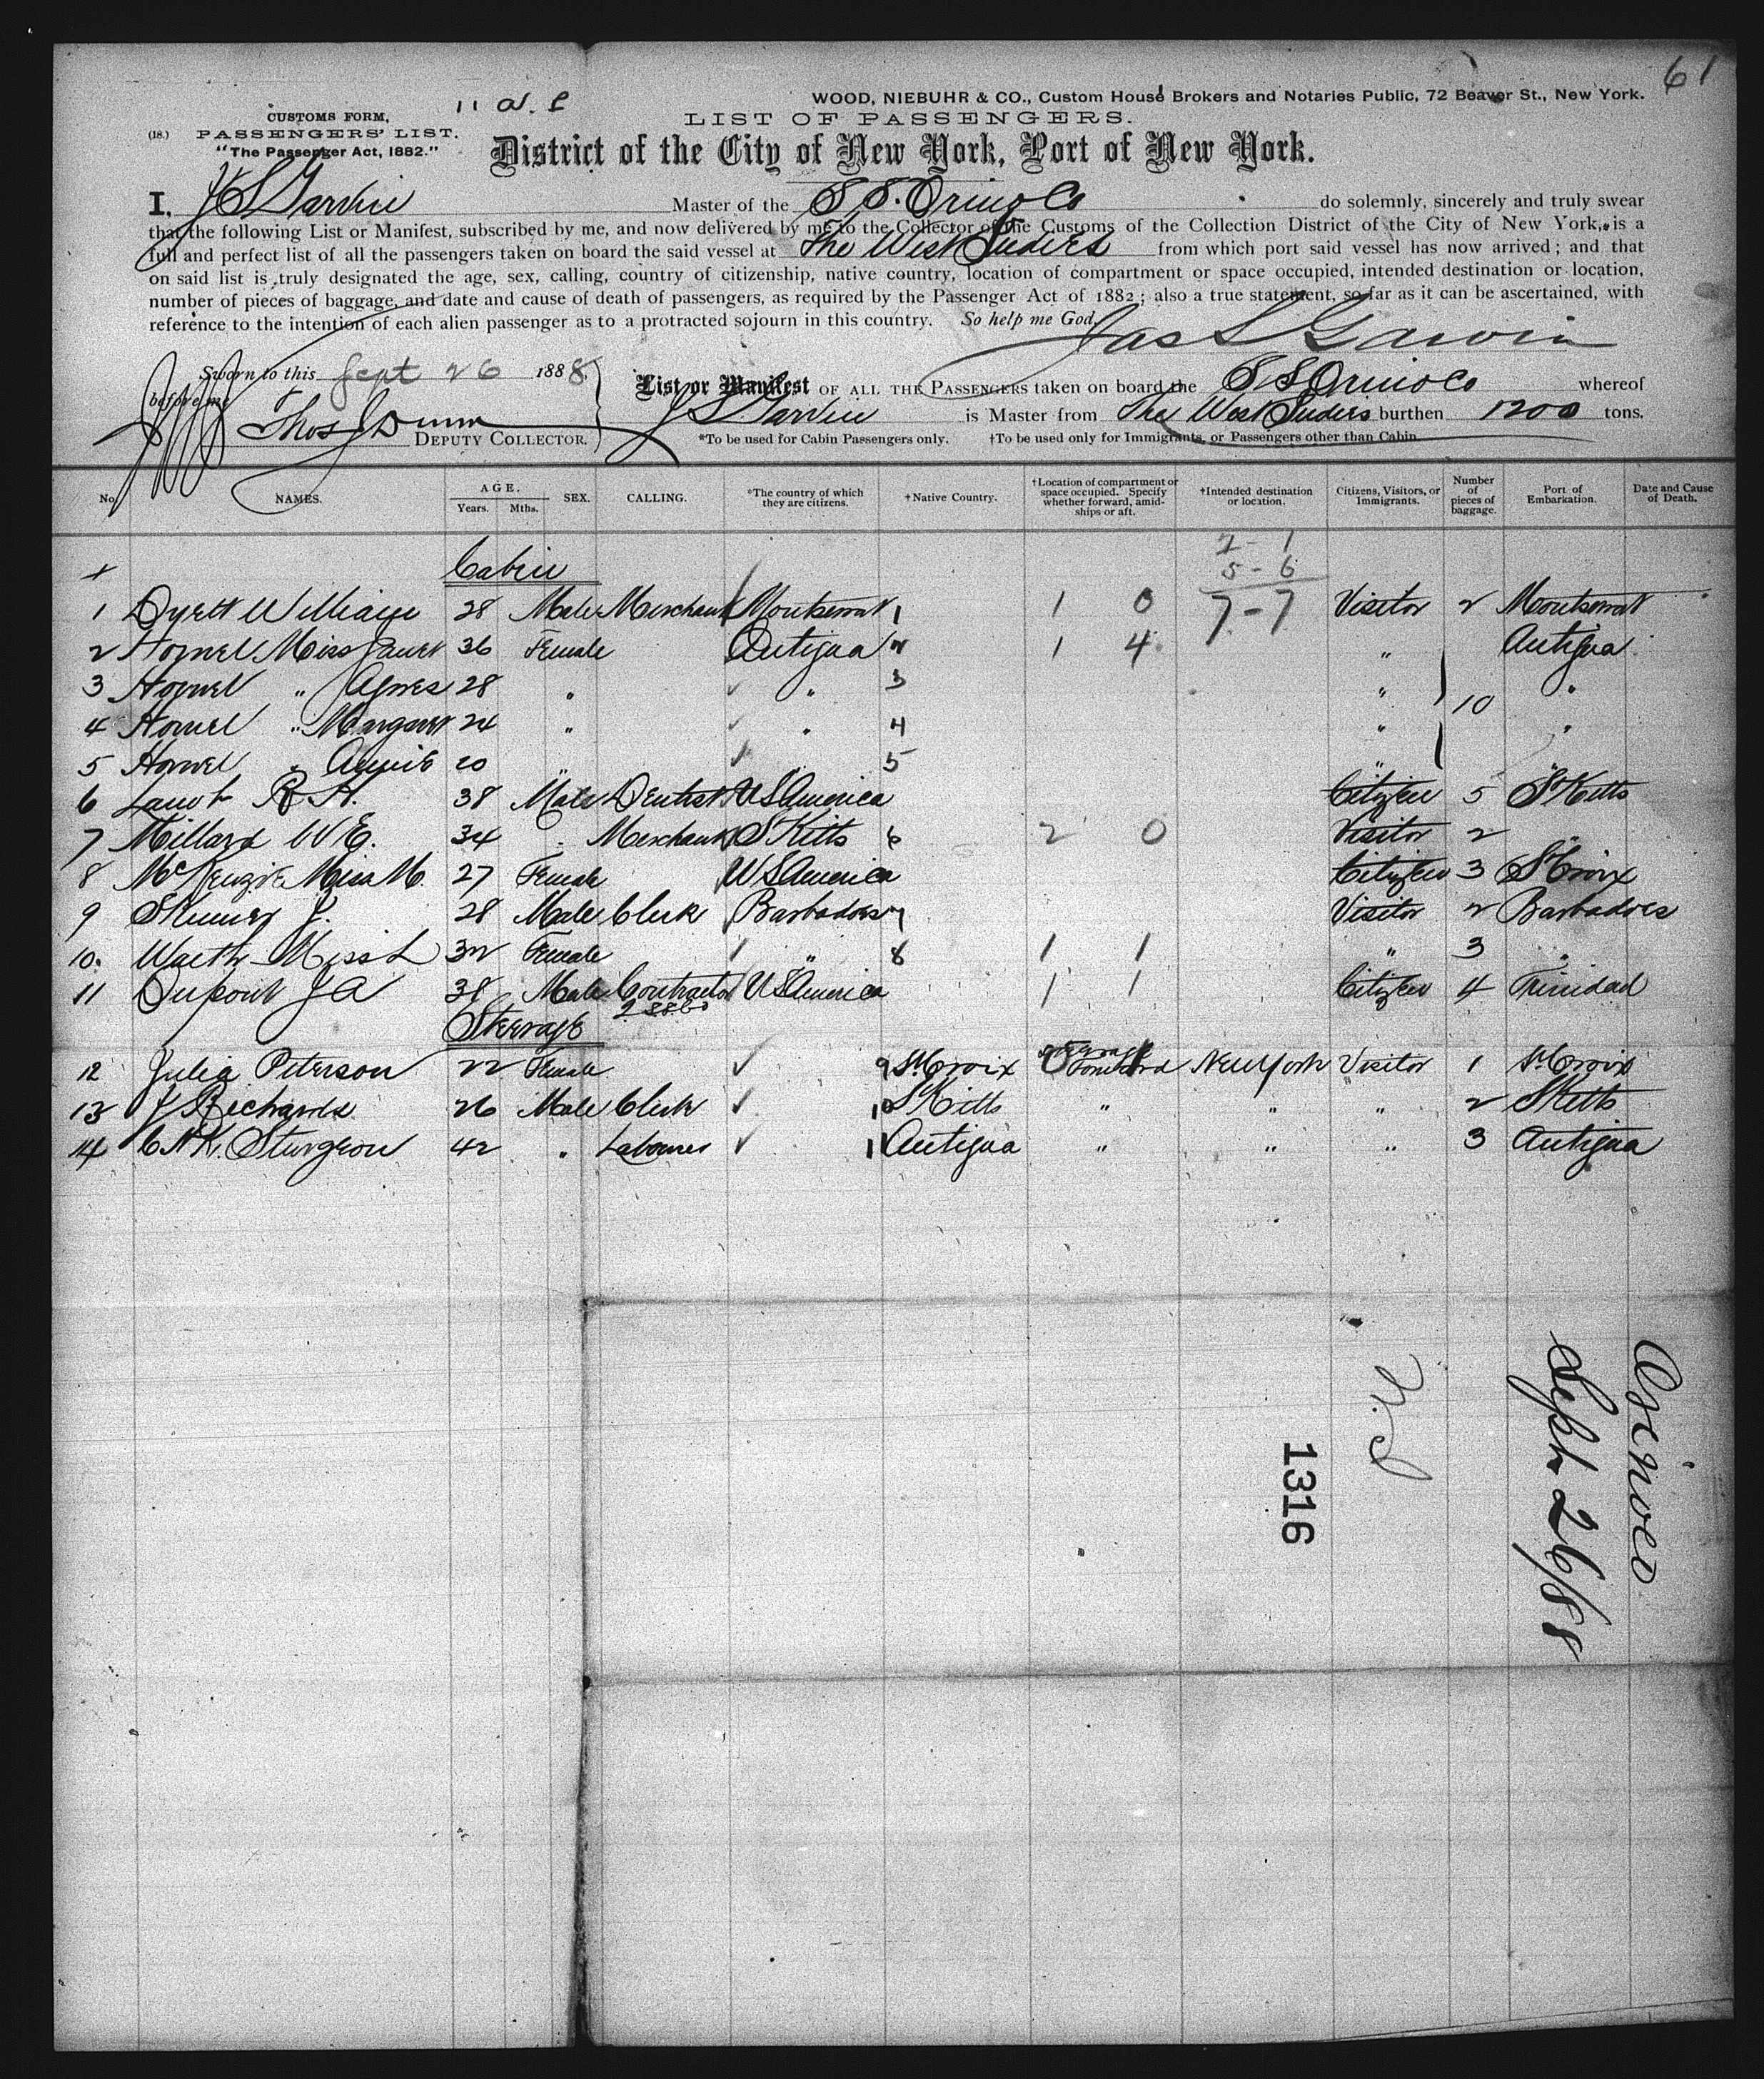 61
11 a. L
WOOD, NIEBUHR & CO., Custom House Brokers and Notaries Public, 72 Beaver St., New York.
CUSTOMS FORM,
(18.) PASSENGERS' LIST.
"The Passenger Act, 1882."
LIST OF PASSENGERS.
District of the City of New York, Port of New York.
I, J S Garvin Master of the S S. Orinoco do solemnly, sincerely and truly swear
that the following List or Manifest, subscribed by me, and now delivered by me to the Collector of the Customs of the Collection District of the City of New York, is a
full and perfect list of all the passengers taken on board the said vessel at The West Indies from which port said vessel has now arrived; and that
on said list is truly designated the age, sex, calling, country of citizenship, native country, location of compartment or space occupied, intended destination or location,
number of pieces of baggage, and date and cause of death of passengers, as required by the Passenger Act of 1882; also a true statement, so far as it can be ascertained, with
reference to the intention of each alien passenger as to a protracted sojourn in this country. So help me God.
Jas S Garvin
Sworn to this Sept 26 1888.
before me
Thos J Dunn DEPUTY COLLECTOR.
List or Manifest OF ALL THE PASSENGERS taken on board the S S Orinoco whereof
J S Garvin is Master from The West Indies burthen 1200 tons.
*To be used for Cabin Passengers only. †To be used only for Immigrants, or Passengers other than Cabin.
No. NAMES. AGE. Years. Mths. SEX. CALLING. *The country of which they are citizens. †Native Country. †Location of compartment or space occupied. Specify whether forward, amidships or aft. †Intended destination or location. Citizens, Visitors, or Immigrants. Number of pieces of baggage. Port of Embarkation. Date and Cause of Death.
2 - 1
5 - 6
7 - 7
Cabin
1 Dyett William 28 Male Merchant Montserrat 1 1 0 Visitor 2 Montserrat
2 Hornel Miss Janet 36 Female Antigua 2 1 4 " Antigua
3 Hornel " Agnes 28 " " 3 " 10 "
4 Hornel " Margaret 24 " " 4 " "
5 Hornel " Annie 20 " " 5 " "
6 R H. 38 Male Dentist U S America Citizen 5 St Kitts
7 Millard W E. 34 " Merchant St Kitts 6 2 0 Visitor 2 "
8 McKenzie Miss M. 27 Female U S America Citizen 3 St Croix
9 J. 28 Male Clerk Barbadoes 7 Visitor 2 Barbadoes
10. Miss L 32 Female " 8 1 1 " 3 "
11 Dupont J A 38 Male Contractor U S America 1 1 Citizen 4 Trinidad
Steerage
12 Julia Peterson 22 Female 9 St Croix New York Visitor 1 St Croix
13 J Richards 26 Male Clerk 10 St Kitts " " " 2 St Kitts
14 C N K. Sturgeon 42 " Labourer 11 Antigua " " " 3 Antigua
1316
Orinoco
Sept 26/88